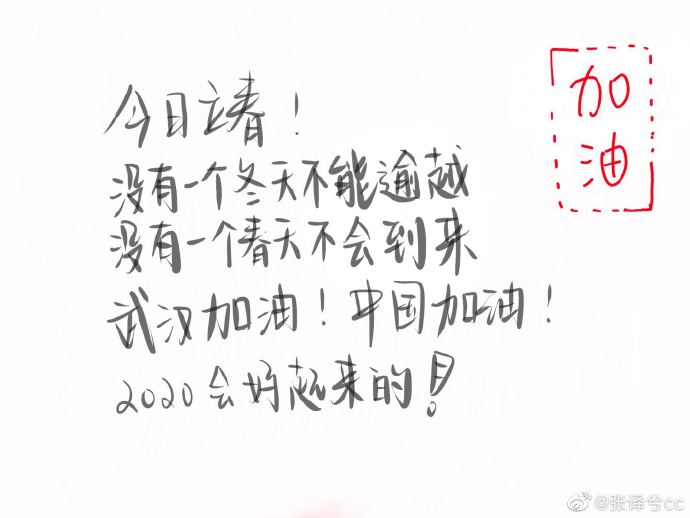 今日立春！
没有一个冬天不能逾越
没有一个春天不会到来
武汉加油！中国加油！
2020会好起来的！
加
油
@张译兮cc